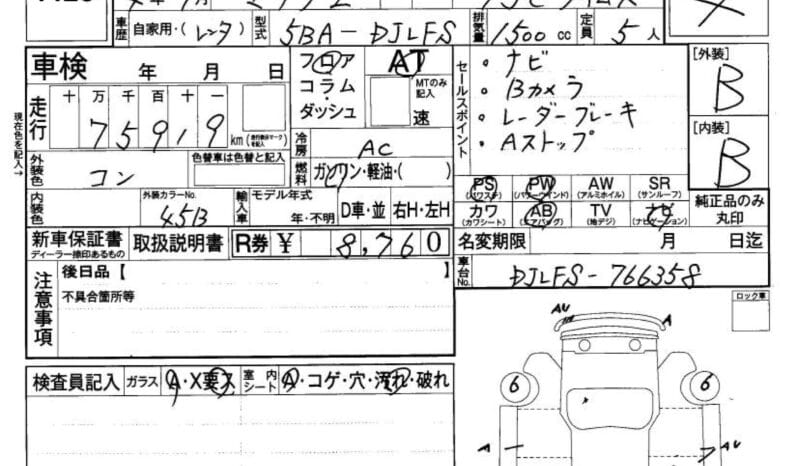 車歴 自家用・(レンタ) 型式 5BA-DJLFS 排気量 1500 cc 定員 5 人
車検 年 月 日
フロア コラム・ダッシュ
AT MTのみ記入 速
セールスポイント
・ナビ
・Bカメラ
・レーダーブレーキ
・Aストップ
[外装] B
[内装] B
現在色を記入→
走行 十 万 千 百 十 一
75919 km
冷房 AC
燃料 ガソリン・軽油・( )
外装色 コン 色替車は色替と記入
内装色 外装カラーNo. 45B
輸入車 モデル年式 年・不明 D車・並 右H・左H
PS (パワステ) PW (パワーウインド) AW (アルミホイル) SR (サンルーフ)
カワ (カワシート) AB (エアバッグ) TV (地デジ) ナビ (ナビゲーション)
純正品のみ丸印
新車保証書 ディーラー捺印あるもの 取扱説明書 R券 ¥ 8,760
名変期限 月 日迄
車台No. DJLFS-766358
注意事項
後日品【
不具合箇所等
ロック車
検査員記入 ガラス A・X要ス 室内シート A・コゲ・穴・汚れ・破れ
AU A
6 6
A AU